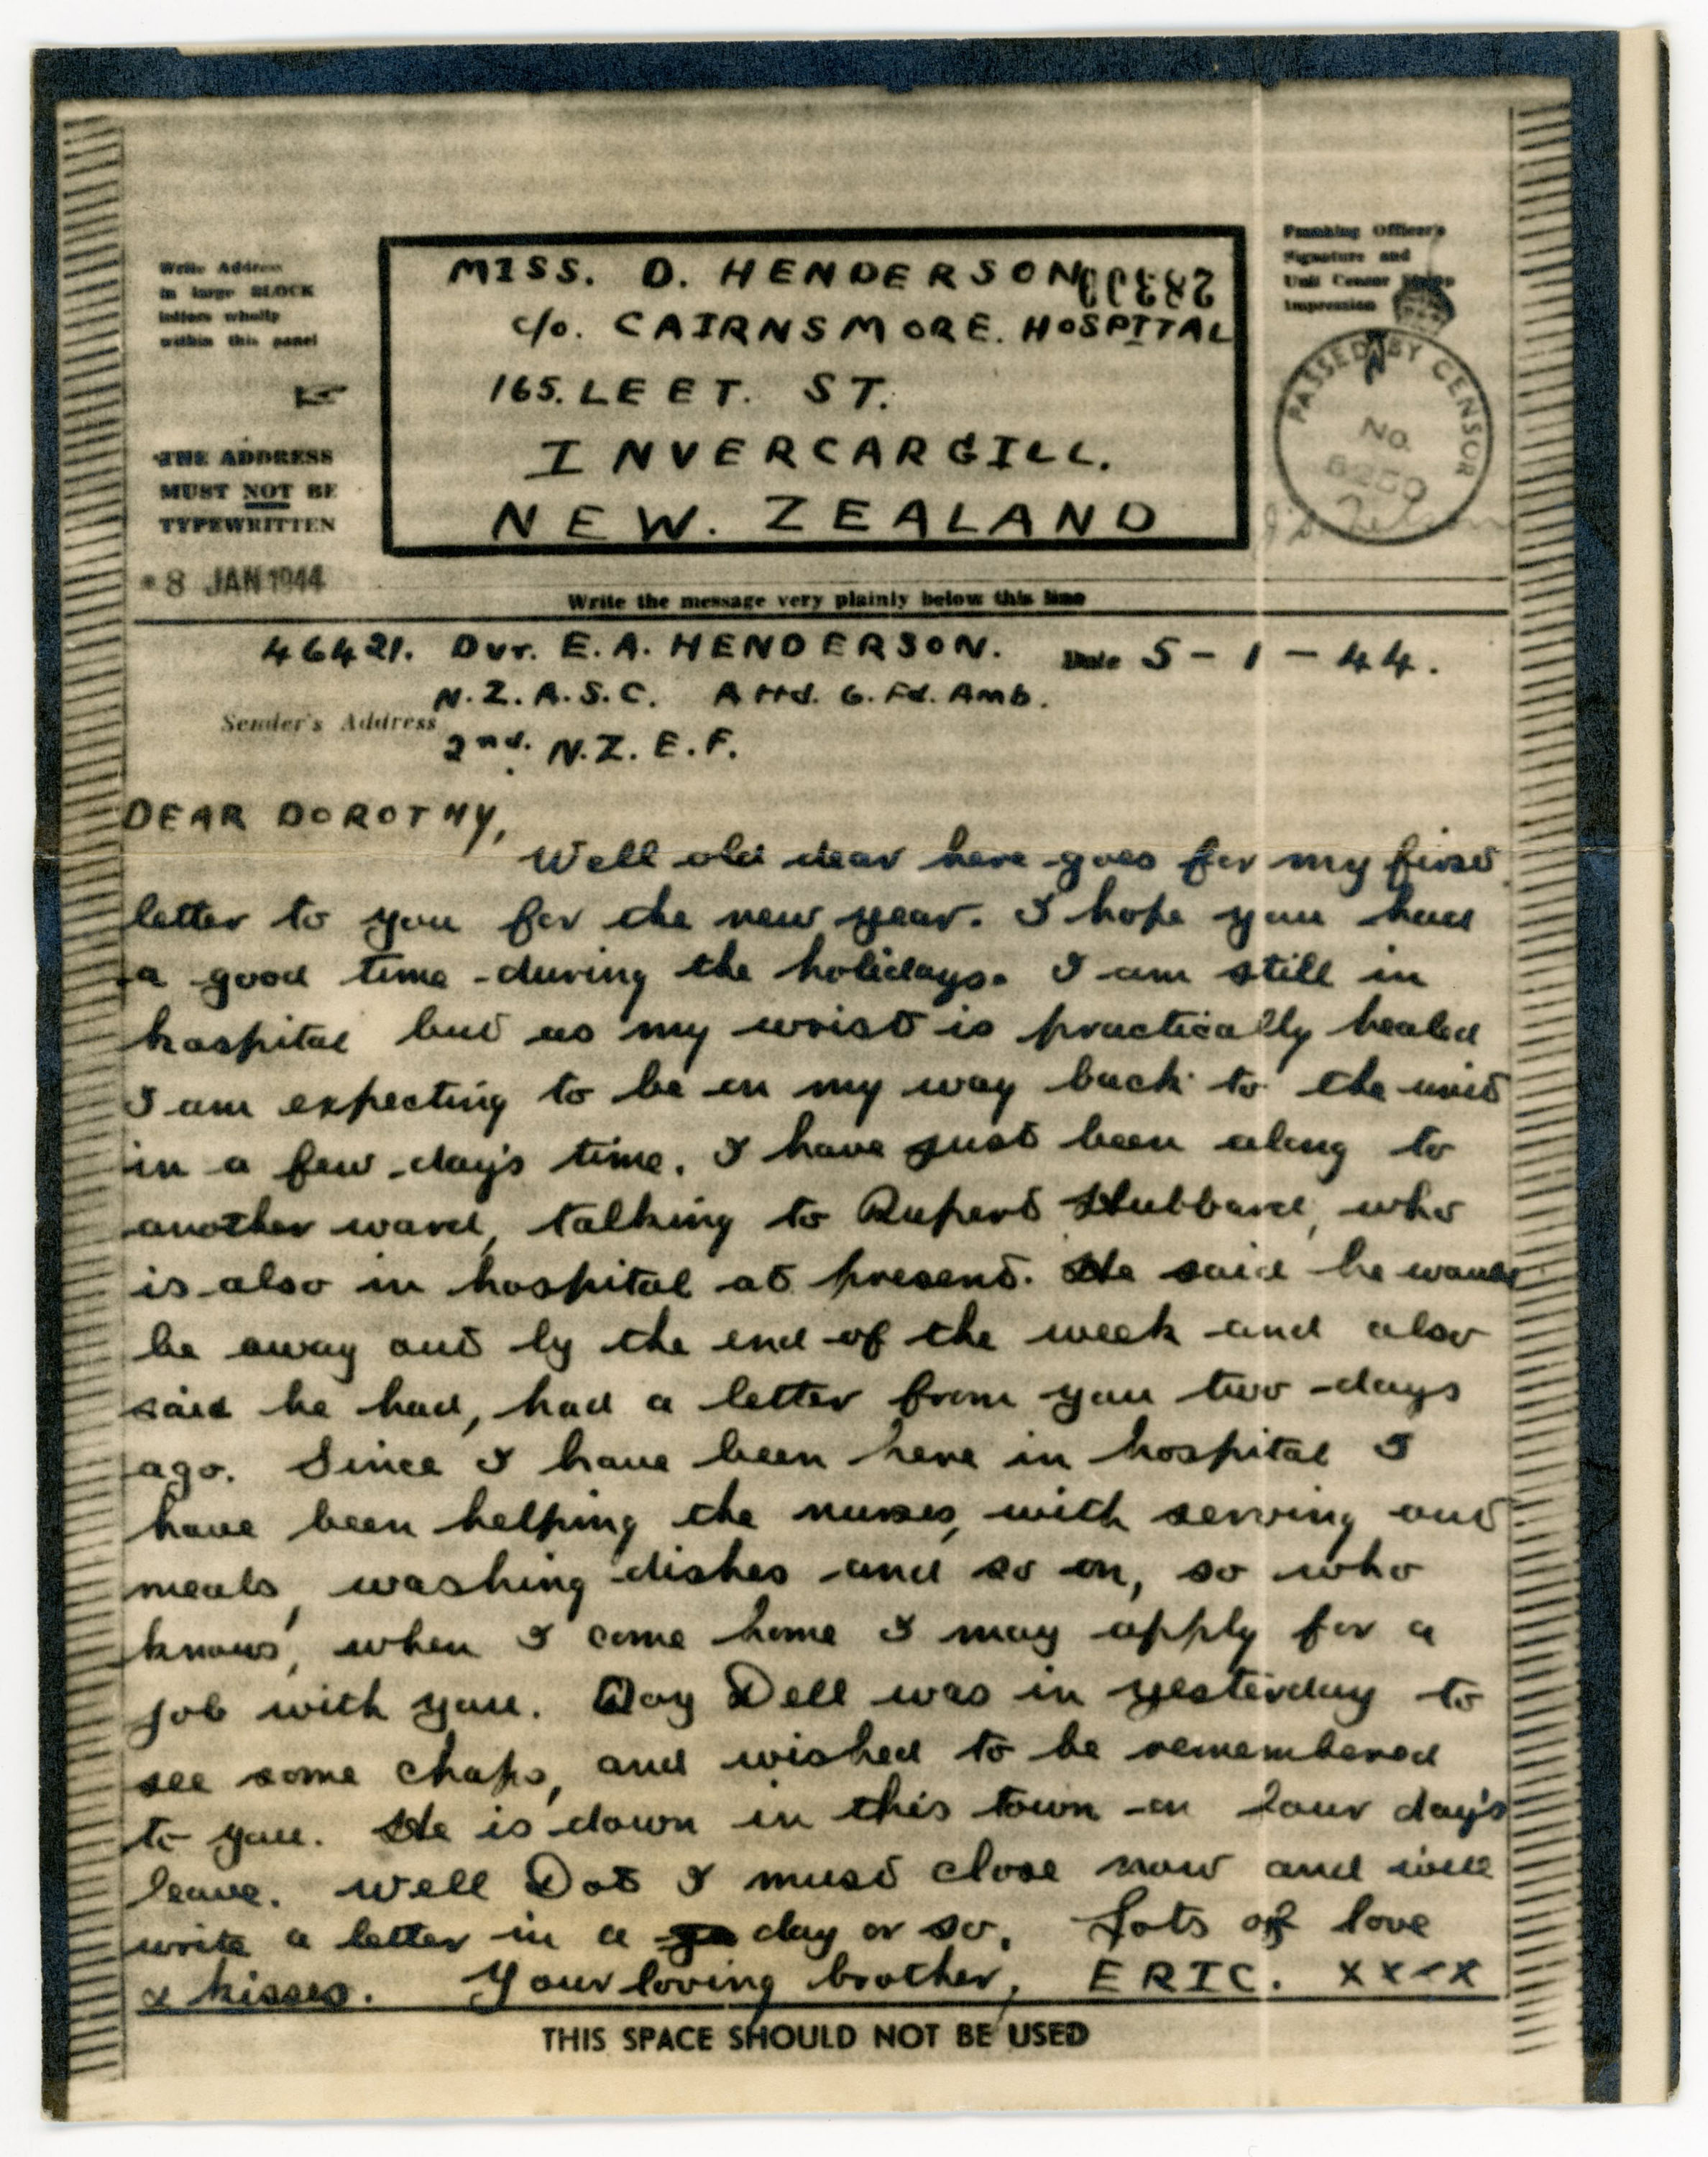 Write Address
in large BLOCK
letters wholly
within this panel
THE ADDRESS
MUST NOT BE
TYPEWRITTEN
*8 JAN 1944
MISS. D. HENDERSON
c/o. CAIRNSMORE. HOSPITAL
165. LEET. ST.
INVERCARGILL.
NEW. ZEALAND
Franking Officer's
Signature and
Unit Censor Stamp
Impression
PASSED BY CENSOR
No.
6250
Write the message very plainly below this line
46421. Dvr. E.A. HENDERSON. Date 5-1-44.
N.Z.A.S.C. Attd. 6. Fd. Amb.
Sender's Address
2nd. N.Z.E.F.
DEAR DOROTHY,
Well old dear here goes for my first
letter to you for the new year. I hope you had
a good time during the holidays. I am still in
hospital but as my wrist is practically healed
I am expecting to be on my way back to the unit
in a few day's time. I have just been along to
another ward, talking to Rupert Hubbard, who
is also in hospital at present. He said he would
be away out by the end of the week and also
said he had, had a letter from you two days
ago. Since I have been here in hospital I
have been helping the nurses, with serving out
meals, washing dishes and so on, so who
knows, when I come home I may apply for a
job with you. Doy Dell was in yesterday to
see some chaps, and wished to be remembered
to you. He is down in this town on four day's
leave. Well Dot I must close now and will
write a letter in a day or so. Lots of love
& kisses. Your loving brother, ERIC. XXXX
THIS SPACE SHOULD NOT BE USED